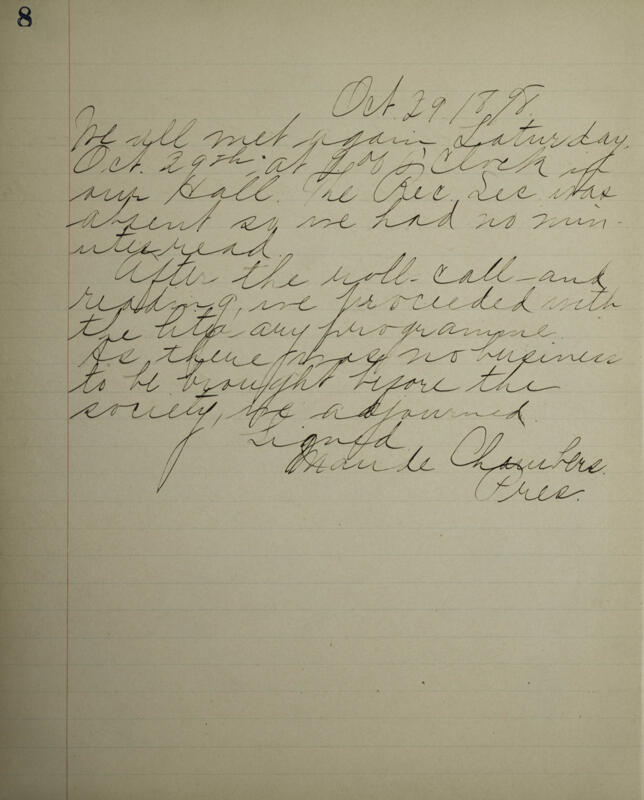 8
Oct. 29 1898.
We all met again Saturday,
Oct. 29th at O'Clock in
our Hall. The Rec. Sec was
absent so we had no min-
utes read.
After the roll-call-and
reading, we proceeded with
the literary programme.
As there was no business
to be brought before the
society, we adjourned.
Signed
Maude Chambers.
Pres.